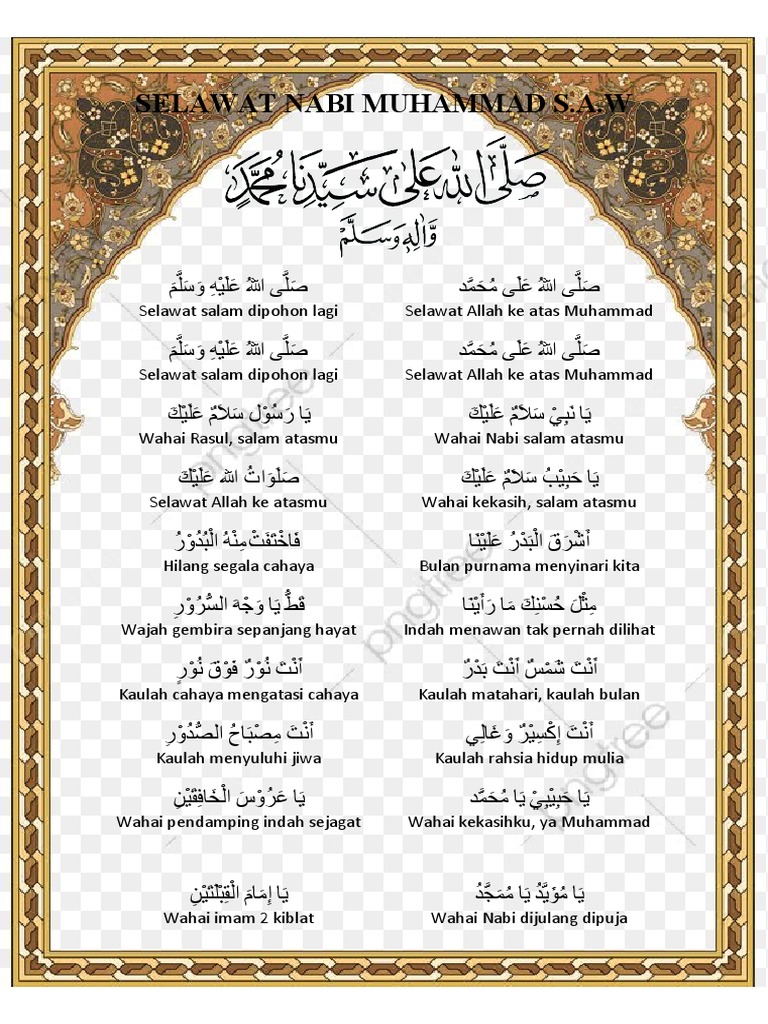 SELAWAT NABI MUHAMMAD S.A.W
صَلَّى اللّٰهُ عَلٰى سَيِّدِنَا مُحَمَّدٍ
وَّاٰلِهٖ وَسَلَّمْ
صَلَّى اللهُ عَلَى مُحَمَّد صَلَّى اللهُ عَلَيْهِ وَ سَلَّمَ
Selawat Allah ke atas Muhammad Selawat salam dipohon lagi
صَلَّى اللهُ عَلَى مُحَمَّد صَلَّى اللهُ عَلَيْهِ وَ سَلَّمَ
Selawat Allah ke atas Muhammad Selawat salam dipohon lagi
يَا نَبِيْ سَلَامٌ عَلَيْكَ يَا رَسُوْل سَلَامٌ عَلَيْكَ
Wahai Nabi salam atasmu Wahai Rasul, salam atasmu
يَا حَبِيْبُ سَلَامٌ عَلَيْكَ صَلَوَاتُ الله عَلَيْكَ
Wahai kekasih, salam atasmu Selawat Allah ke atasmu
أَشْرَقَ الْبَدْرُ عَلَيْنَا فَاخْتَفَتْ مِنْهُ الْبُدُوْرُ
Bulan purnama menyinari kita Hilang segala cahaya
مِثْلَ حُسْنِكَ مَا رَأَيْنَا قَطُّ يَا وَجْهَ السُّرُوْرِ
Indah menawan tak pernah dilihat Wajah gembira sepanjang hayat
أَنْتَ شَمْسٌ أَنْتَ بَدْرٌ أَنْتَ نُوْرٌ فَوْقَ نُوْرٍ
Kaulah matahari, kaulah bulan Kaulah cahaya mengatasi cahaya
أَنْتَ إِكْسِيْرٌ وَغَالِي أَنْتَ مِصْبَاحُ الصُّدُوْرِ
Kaulah rahsia hidup mulia Kaulah menyuluhi jiwa
يَا حَبِيْبِيْ يَا مُحَمَّد يَا عَرُوْسَ الْخَافِقَيْنِ
Wahai kekasihku, ya Muhammad Wahai pendamping indah sejagat
يَا مُؤَيَّدُ يَا مُمَجَّدُ يَا إِمَامَ الْقِبْلَتَيْنِ
Wahai Nabi dijulang dipuja Wahai imam 2 kiblat
pngtree
pngtree
pngtree